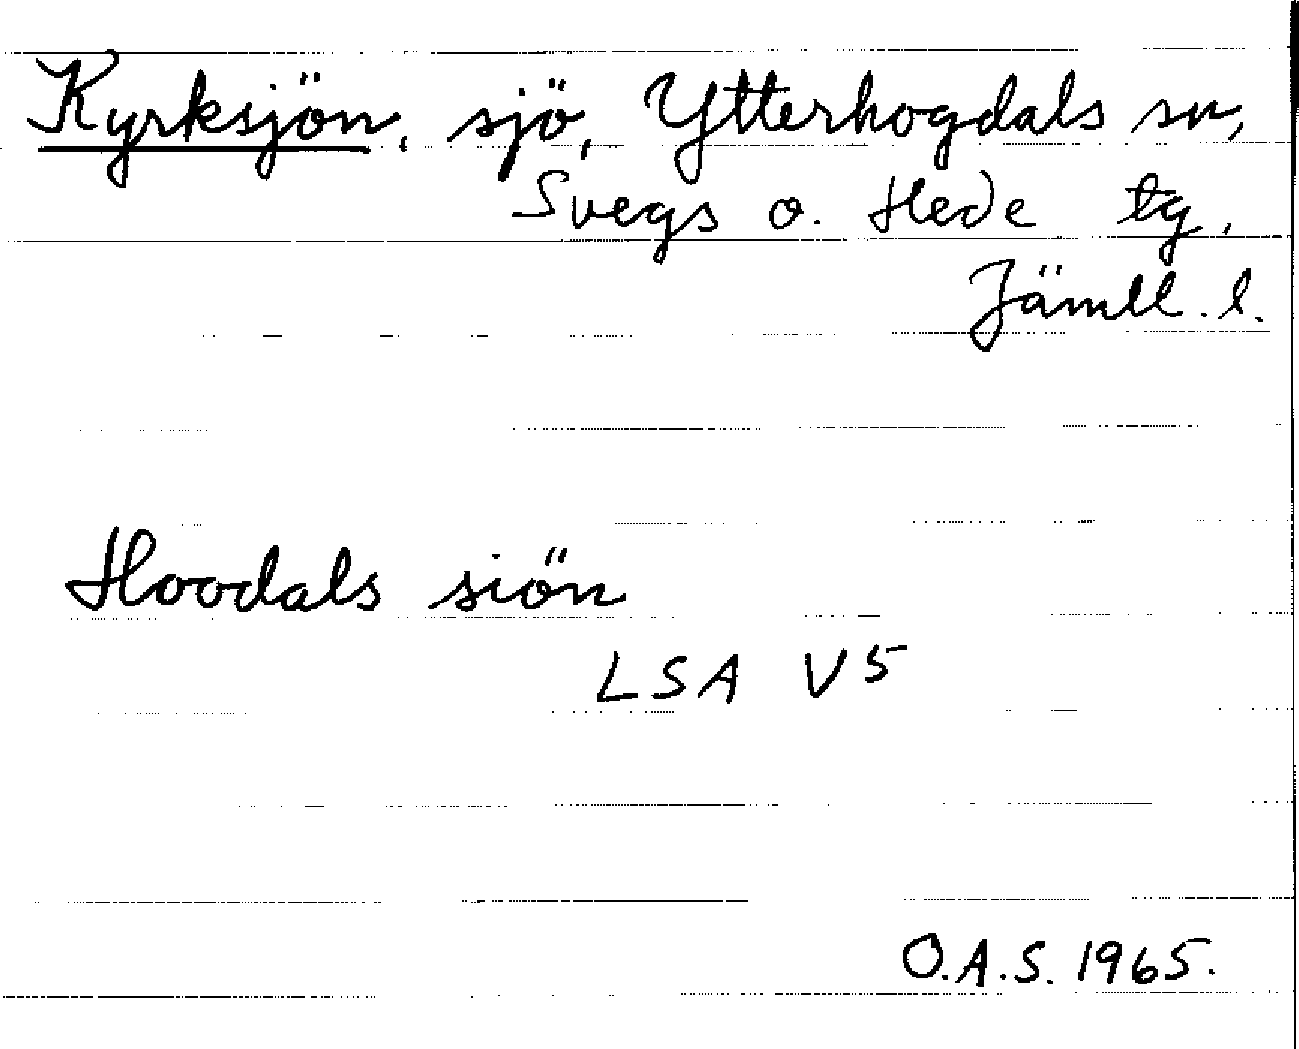 Kyrksjön, sjö, Ytterhogdals sn,
Svegs o. Hede tg,
Jämtl. l.
Hoodals siön
LSA V5
O.A.S. 1965.